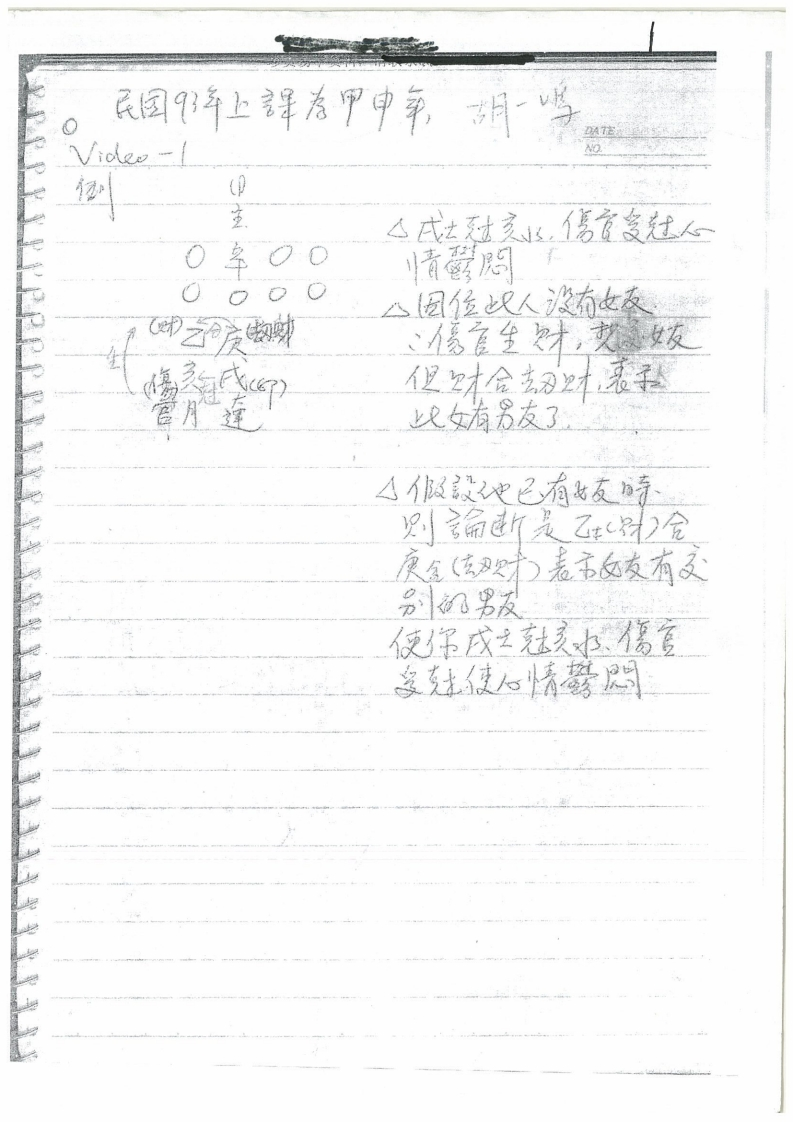 1
民国93年上課為甲申年 胡一鳴
DATE
NO.
Video-1
例
日
主
○ 辛 ○ ○
○ ○ ○ ○
(財) 乙 合 庚 (劫財)
生
(傷官) 亥 尅 戌 (印)
月 運
△ 戌土尅亥水、傷官受尅心
情鬱悶
△ 因位此人沒有女友、
∵傷官生財,想交女友
但財合劫財,表示
此女有男友了.
△ 假設他已有女友時、
則論断是乙木(財)合
庚金(劫財)表示女友有交
別的男友
使你戌土尅亥水、傷官
受尅使心情鬱悶